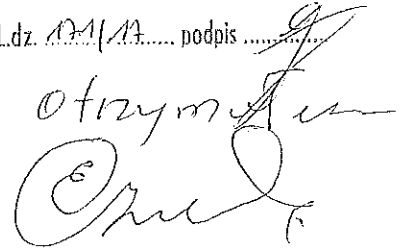 L.dz. 171/17 podpis
Otrzymałem